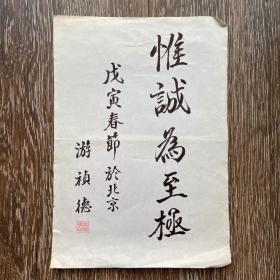 惟誠為至極
戊寅春節於北京
游禎德